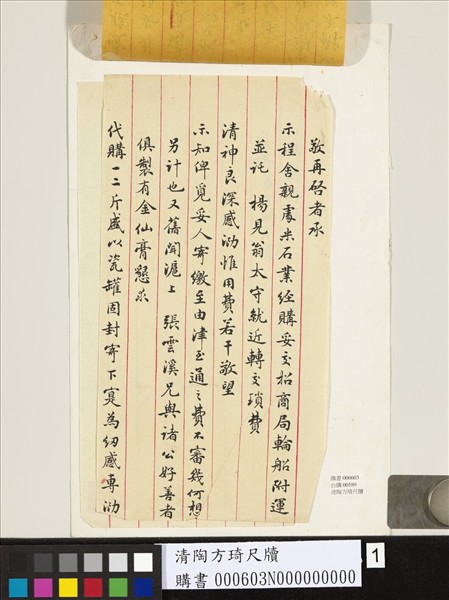 敬再啓者承
示程舍親處米石業經購妥交招商局輪船附運
並託 楊見翁太守就近轉交瑣費
清神良深感泐惟用費若干敬望
示知俾覓妥人寄繳至由津至通之費不審幾何想
另計也又舊聞滬上 張雲溪兄與諸公好善者
俱製有金仙膏懇求
代購一二斤盛以瓷罐固封寄下寔為紉感專泐
購書 000603
台購 00599
清陶方琦尺牘
清陶方琦尺牘
購書 000603N000000000
1